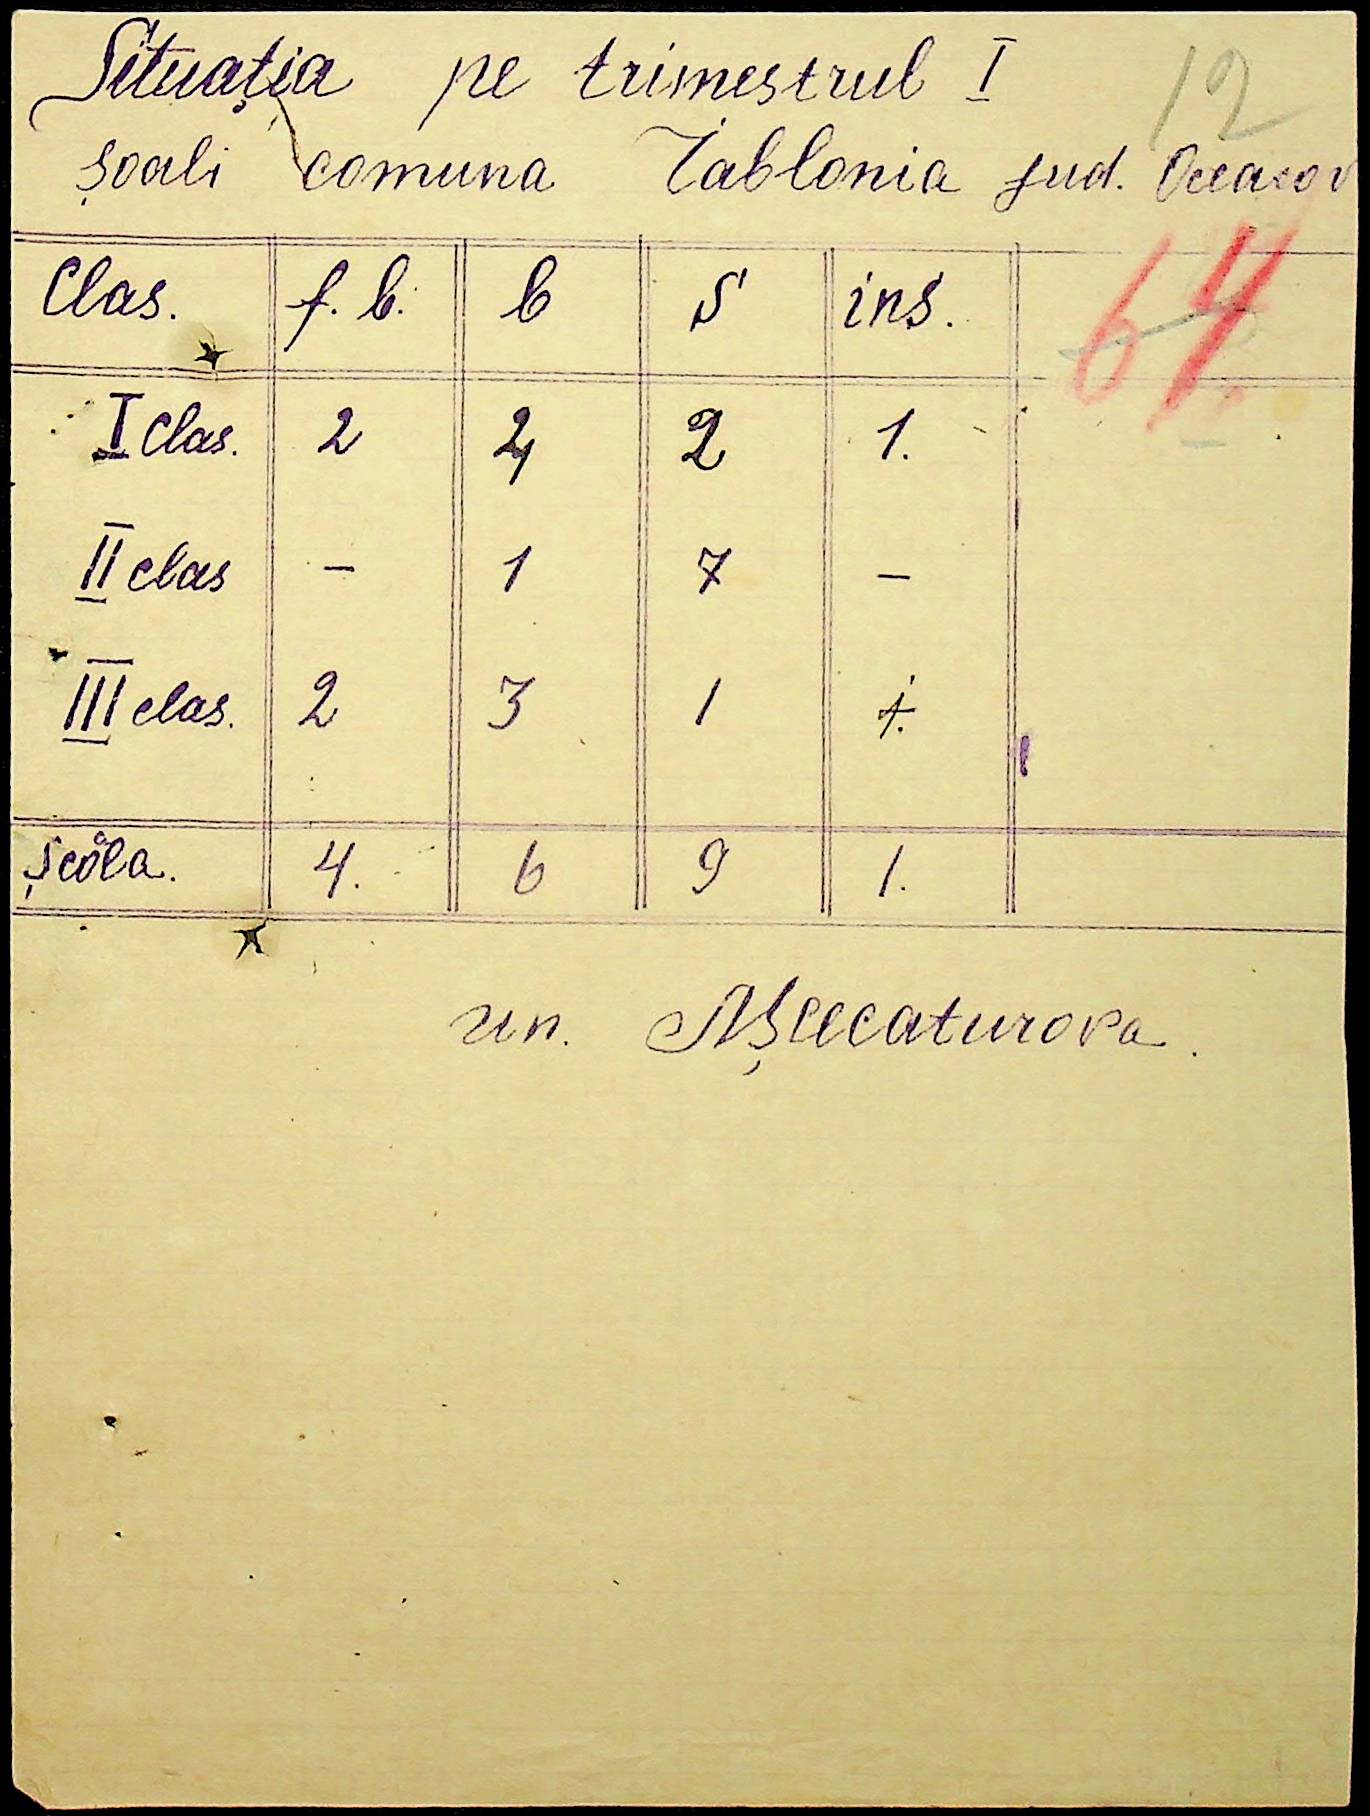 Situația pe trimestrul I
12
șoali comuna Iablonia jud. Oceacov
64
Clas. f. b. b S ins.
I clas. 2 2 2 1.
II clas — 1 7 —
III clas. 2 3 1
școla. 4. 6 9 1.